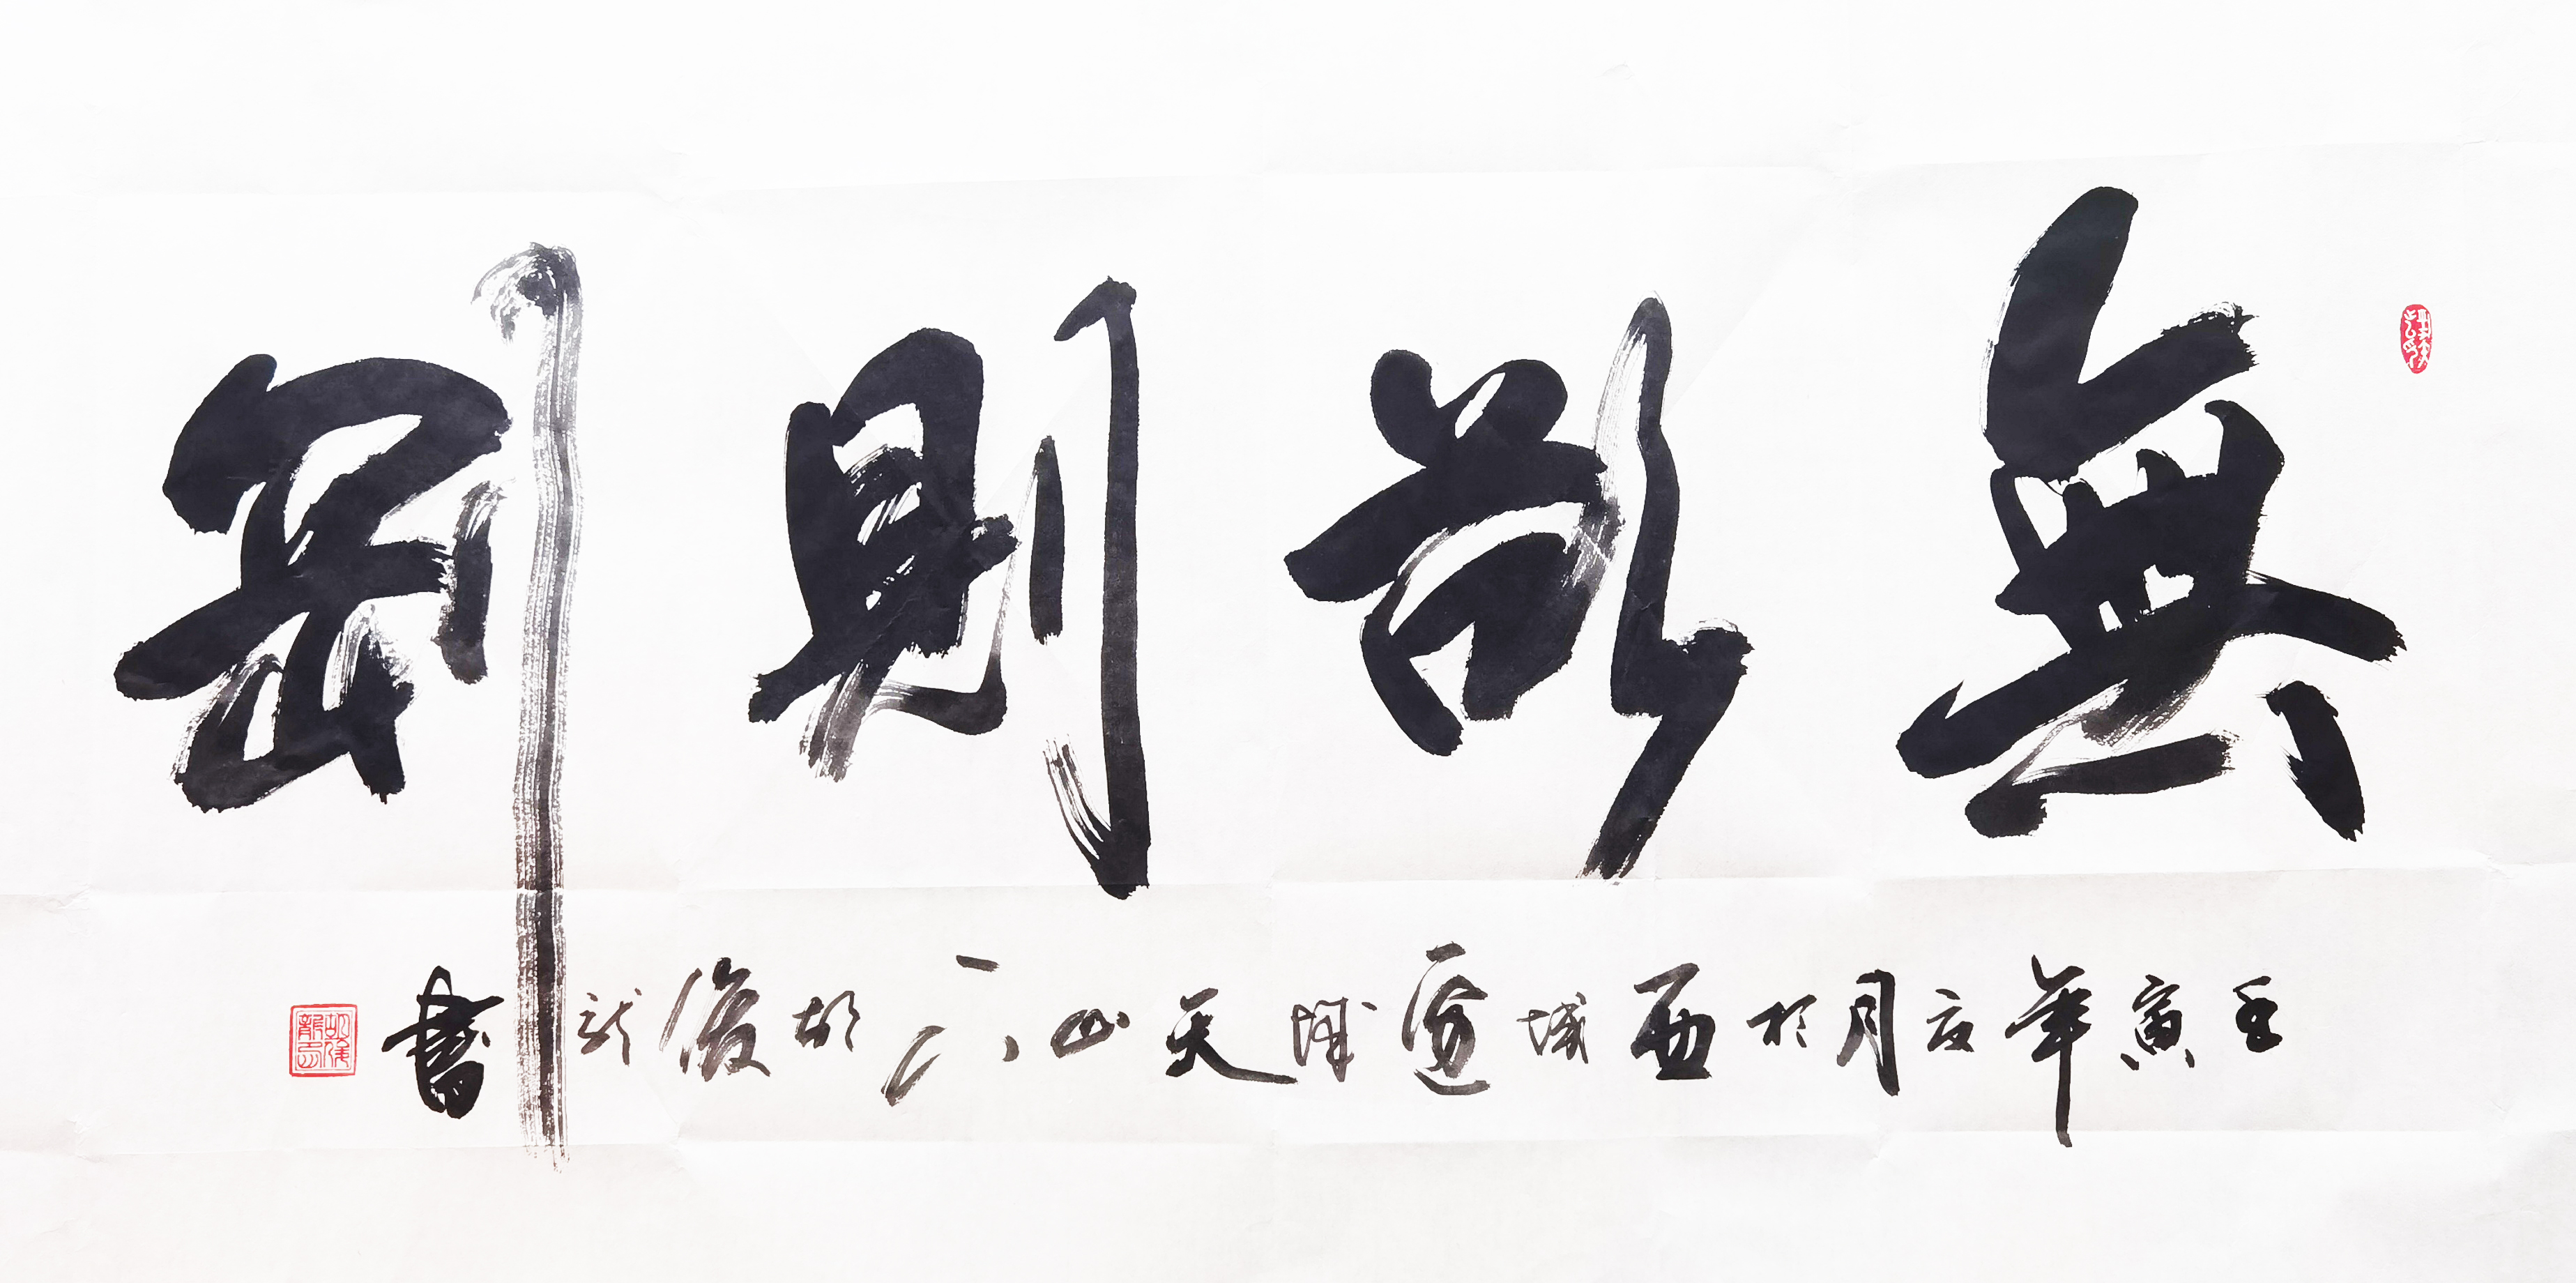 無欲則剛
壬寅年夏月於西域邊城天山下胡俊龍書